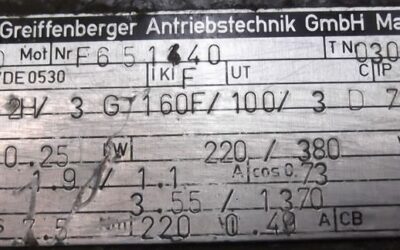 Greiffenberger Antriebstechnik GmbH Ma
Mot Nr F651 40 TN 030
/DE0530 IKl F UT C IP
2H/ 3 GT160F/100/ 3 D 7
0.25 kW 220 / 380
1.9 / 1.1 A cos 0.73
3.55 / 1370
7.5 Nm 220 0.40 A CB